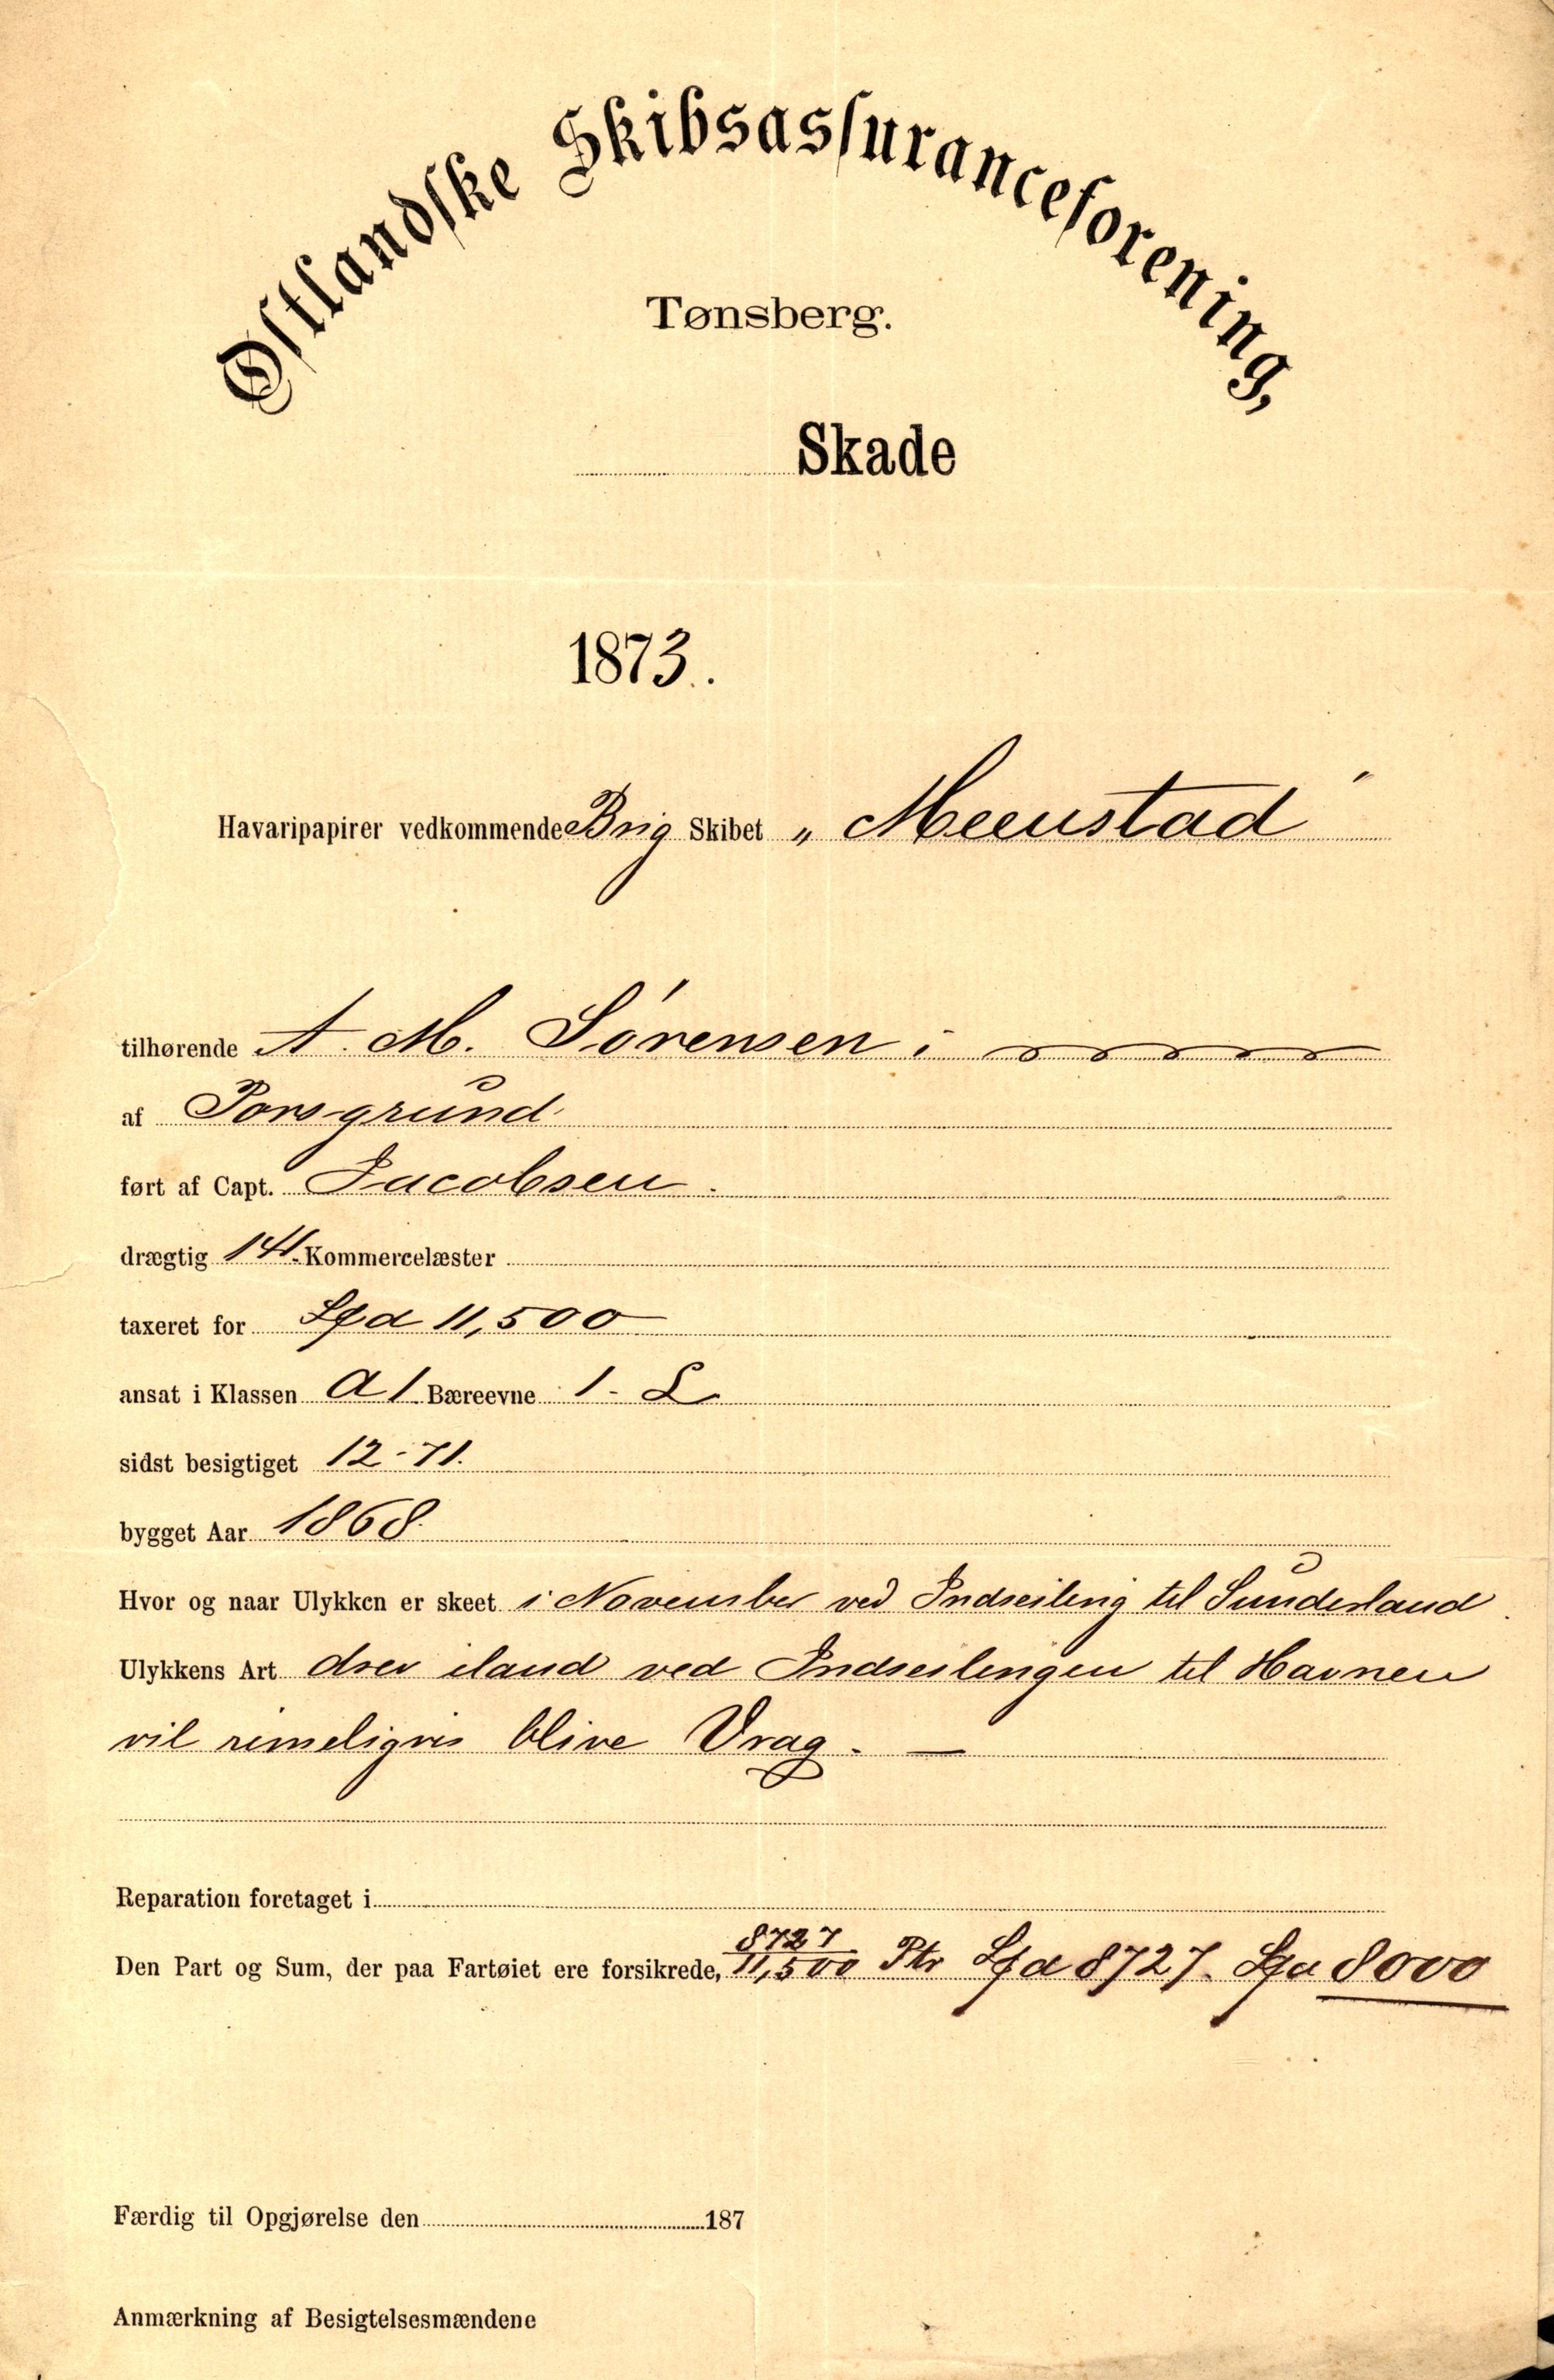 Østlandske Skibsassuranceforening,
Tønsberg.
Skade
1873.
Havaripapirer vedkommende Brig Skibet „ Meenstad "
tilhørende A. M. Sørensen i
af Porsgrund
ført af Capt. Jacobsen.
drægtig 141. Kommercelæster
taxeret for Spd 11,500
ansat i Klassen A1 Bæreevne 1 - L
sidst besigtiget 12-71.
bygget Aar 1868.
Hvor og naar Ulykken er skeet i November ved Indseiling til Sunderland
Ulykkens Art drev iland ved Indseilingen til Havnen
vil rimeligvis blive Vrag. —
Reparation foretaget i
Den Part og Sum, der paa Fartøiet ere forsikrede, 8727/11,500 Ptr Spd 8727. Spd 8000
Færdig til Opgjørelse den 187
Anmærkning af Besigtelsesmændene